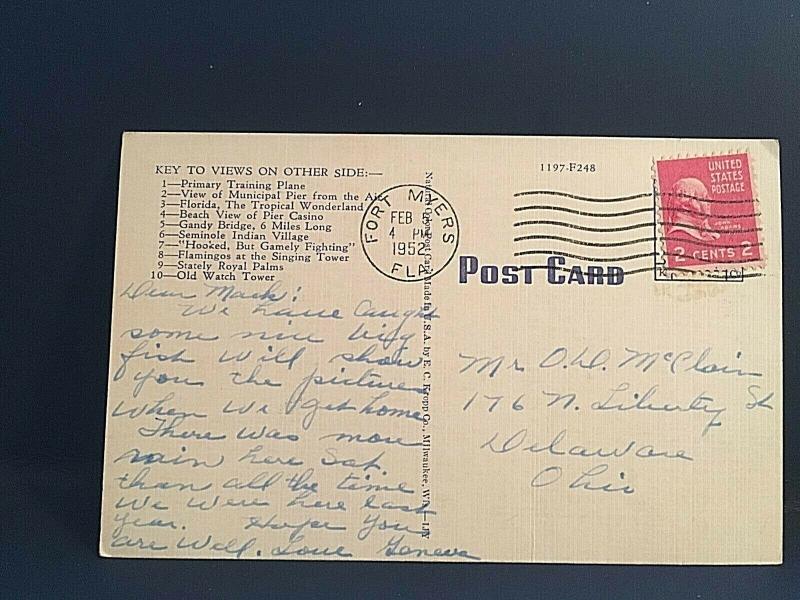 KEY TO VIEWS ON OTHER SIDE:—
1—Primary Training Plane
2—View of Municipal Pier from the Air
3—Florida, The Tropical Wonderland
4—Beach View of Pier Casino
5—Gandy Bridge, 6 Miles Long
6—Seminole Indian Village
7—"Hooked, But Gamely Fighting"
8—Flamingos at the Singing Tower
9—Stately Royal Palms
10—Old Watch Tower
Dear Mack:
We have caught
some nice big
fish will show
you the pictures
when we get home
There was more
rain here Sat.
than all the time
we were here last
year. Hope you
are well. Love Geneva
Natural Color Post Card Made in U.S.A. by E. C. Kropp Co., Milwaukee, Wis.
FORT MYERS
FEB
4 PM
1952
FLA.
1197-F248
UNITED
STATES
POSTAGE
2 CENTS 2
POST CARD
Mr O.D. McClain
176 N. Liberty St
Delaware
Ohio